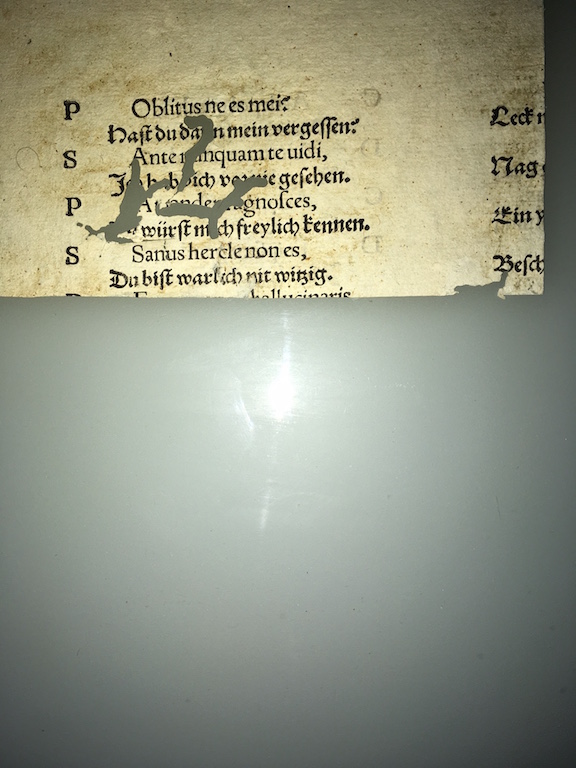 P Oblitus ne es mei?
Hast du dann mein vergessen?
S Ante nunquam te uidi,
hab dich vor nie gesehen.
P agnosces,
würst mich freylich kennen.
S Sanus hercle non es,
Du bist warlich nit witzig.
hallucinaris
Leck
Nag
Ein
Besch